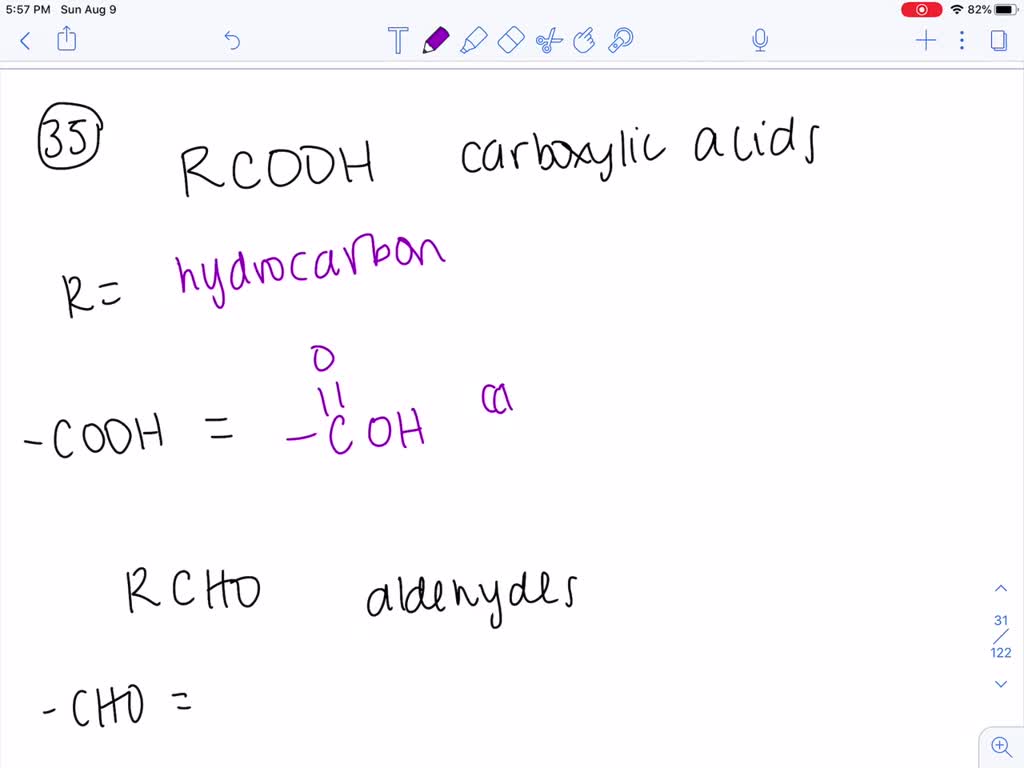 5:57 PM Sun Aug 9
82%
T
35
RCOOH carboxylic acids
R= hydrocarbon
O
||
-COOH = -COH ca
RCHO aldehydes
-CHO =
31
/
122